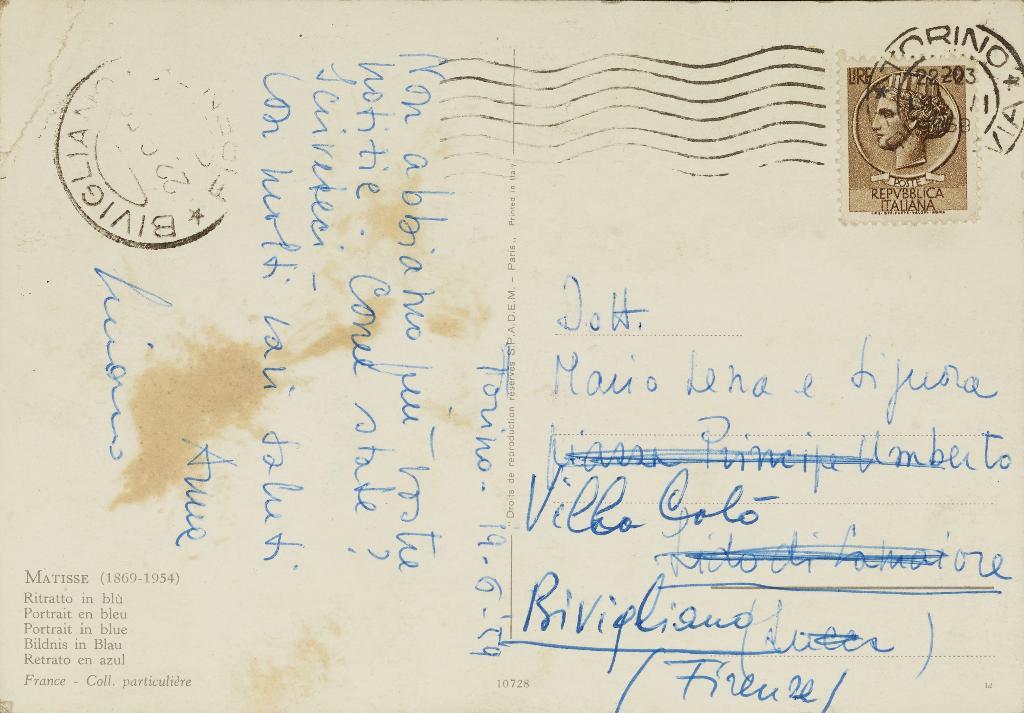 Torino. 19-6-59
Non abbiamo più vostre
notizie. Come state?
Scriveteci -
Con molti cari saluti
Anna
Luciano
BIVIGLIANO
TORINO
LIRE
POSTE
REPVBBLICA
ITALIANA
Dott.
Mario Lena e Signora
Piazza Principe Umberto
Villa Galò
Lido di Camaiore
Bivigliano (Lucca)
(Firenze)
MATISSE (1869-1954)
Ritratto in blù
Portrait en bleu
Portrait in blue
Bildnis in Blau
Retrato en azul
France - Coll. particulière
Droits de reproduction réservés S.P.A.D.E.M. - Paris., Printed in Italy
10728